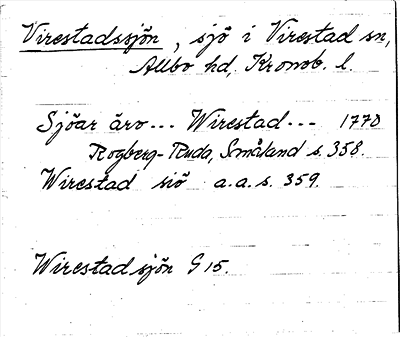 Virestadssjön, sjö i Virestad sn,
Allbo hd, Kronob. l.
Sjöar äro... Wirestad... 1770
Rogberg-Ruda, Småland s. 358.
Wirestad siö a.a.s. 359.
Wirestadsjön G 15.